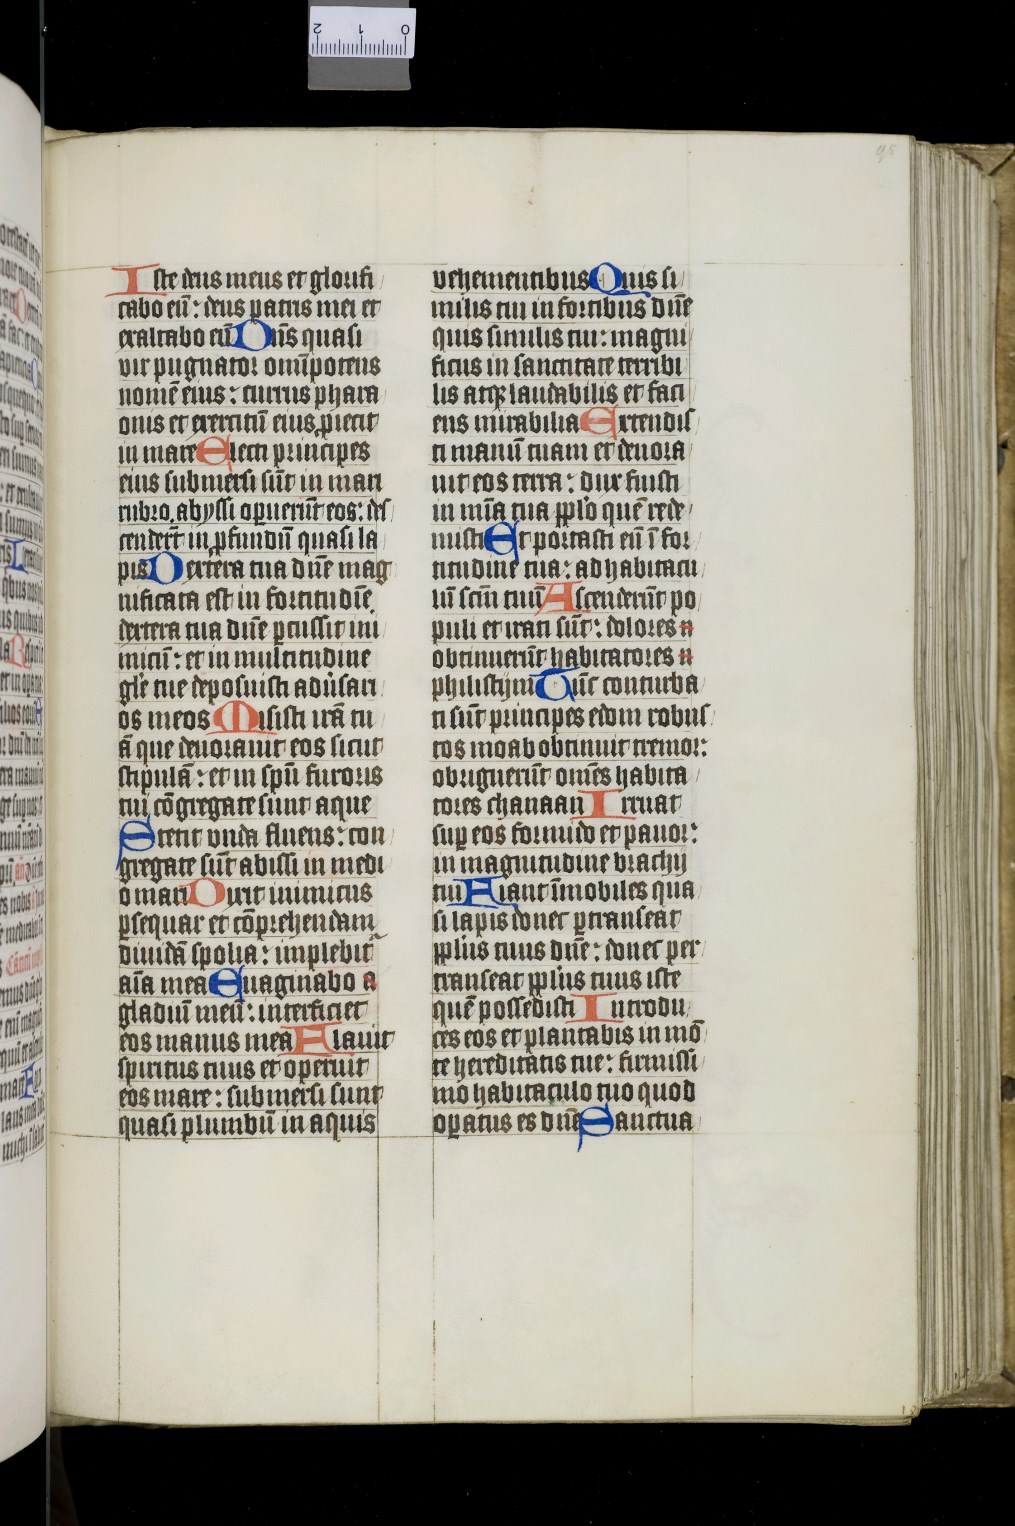 Iste deus meus et glorifi
cabo eũ: deus patris mei et
exaltabo eũ Dñs quasi
vir pugnator om̃ipotens
nomẽ eius: currus phara
onis et exercitũ eius ꝓiecit
in mare Electi principes
eius submersi sũt in mari
rubro. abyssi operuerũt eos: des
cenderũt in ꝓfundũ quasi la
pis Dextera tua dñe mag
nificata est in fortitudĩe
dextera tua dñe ꝑcussit ini
micũ: et in multitudine
glẽ tue deposuisti adũsari
os meos Misisti irã tu
ã que deuorauit eos sicut
stipulã: et in spũ furoris
tui cõgregate sunt aque
Stetit vnda fluens: con
gregate sũt abissi in medi
o mari Dixit inimicus
ꝑsequar et cõprehendam
diuidã spolia: implebit̃
aĩa mea Euaginabo
gladiũ meũ: interficiet
eos manus mea Flauit
spiritus tuus et operuit
eos mare: submersi sunt
quasi plumbũ in aquis
vehementibus Quis si
milis tui in fortibus dñe
quis similis tui: magni
ficus in sanctitate terribi
lis atqꝫ laudabilis et faci
ens mirabilia Extendis
ti manũ tuam et deuora
uit eos terra: dux fuisti
in mĩa tua pplo quẽ rede
misti Et portasti eũ ĩ for
titudine tua: ad habitacu
lũ scm̃ tuũ Ascenderũt po
puli et irati sũt: dolores
obtinuerũt habitatores
philistijm Tũc conturba
ti sũt principes edom robus
tos moab obtinuit tremor:
obriguerũt om̃es habita
tores chanaan Irruat
suꝑ eos formido et pauor:
in magnitudine brachij
tui Fiant ĩmobiles qua
si lapis donec ꝑtranseat
pplus tuus dñe: donec per
transeat pplus tuus iste
quẽ possedisti Introdu
ces eos et plantabis in mõ
te hereditatis tue: firmissi
mo habitaculo tuo quod
oꝑatus es dñe Sanctua
95
0 1 2